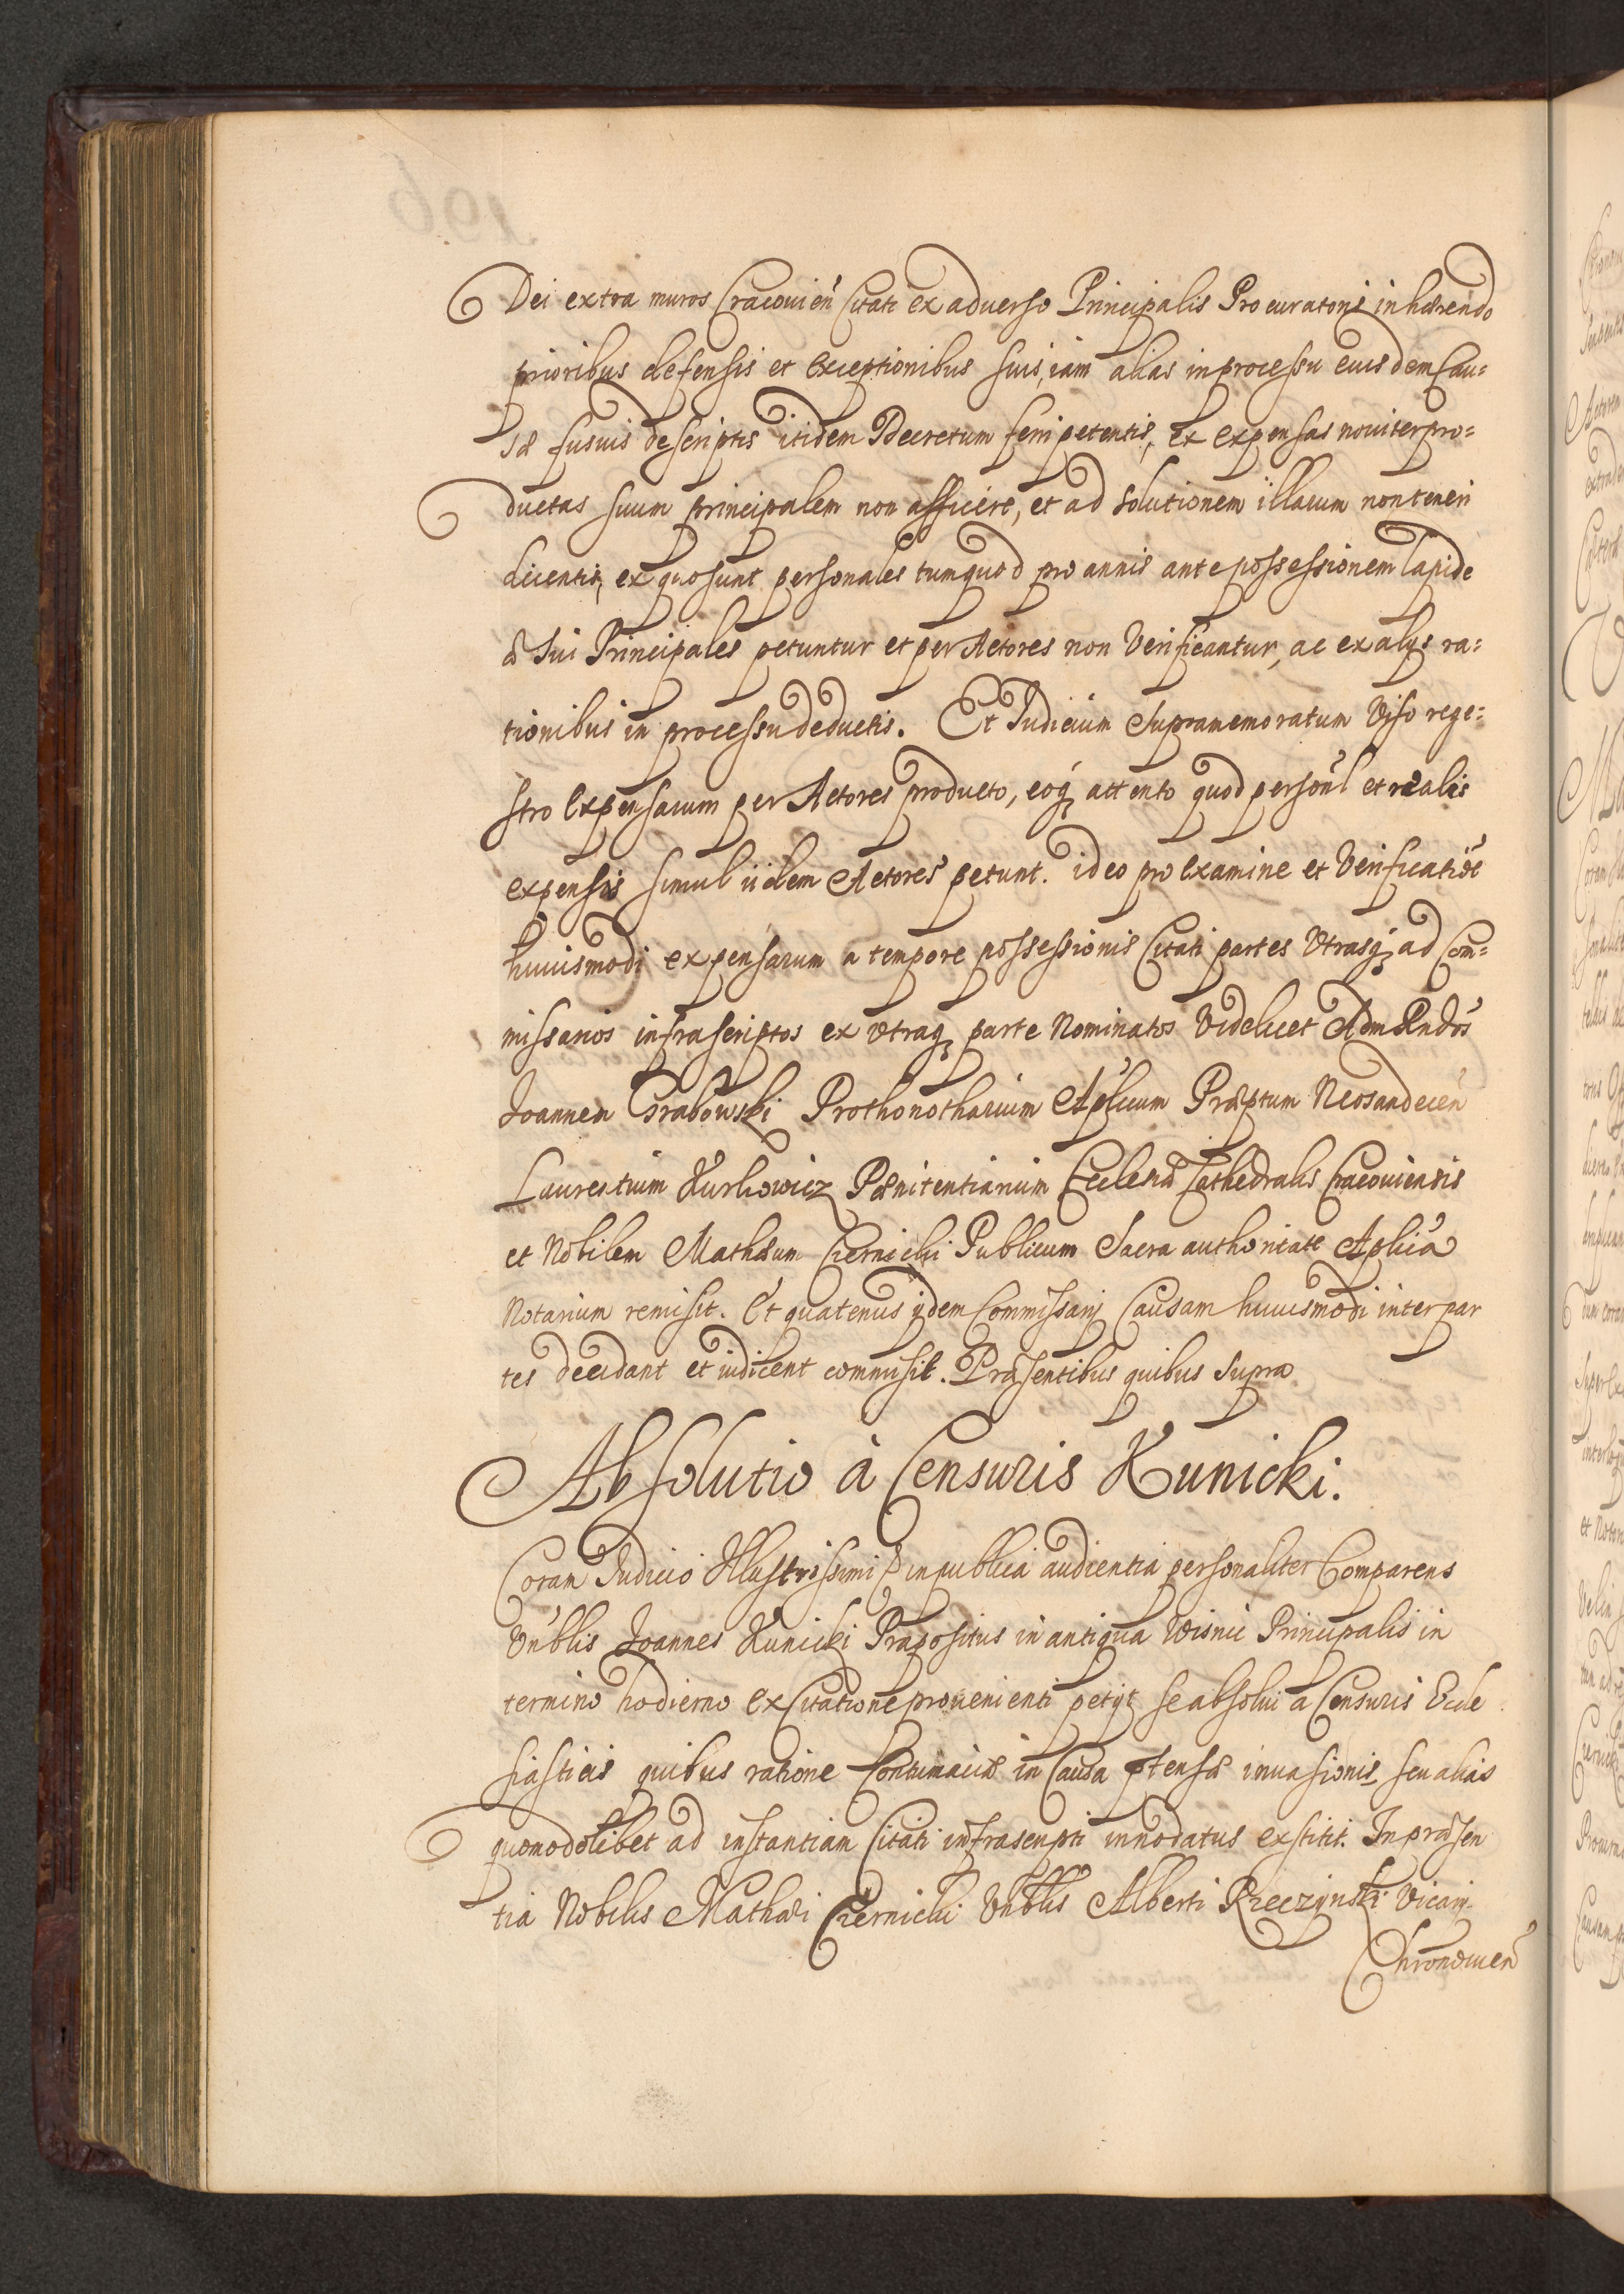 Dei extra muros Cracouień Citati ex aduerso Principalis Procuratoris inhærendo
prioribus defensis et exceptionibus suis, iam alias in processu eiusdem Cau=
sæ fusius descriptis itidem Decretum ferri petentis, et expensas nouiter pro=
ductas suum principalem non afficere, et ad solutionem illarum non teneri
dicentis, ex quo sunt personales tum quod pro annis ante possessionem lapide
a sui Principales petuntur et per Actores non Verificantur, ac ex alys ra=
tionibus in processu deductis. Et Iudicium Supramemoratum Viso rege=
stro Expensarum per Actores producto, eoq, attento quod personl et realis
expensis simul iidem Actores petunt. ideo pro examine et Verificatiõe
huiusmodi expensarum a tempore possessionis Citati partes Vtrasq, ad Com=
missarios infrascriptos ex vtraq, parte Nominatos Videlicet Adm Rndos
Joannem Grabowski Prothonotharium Aplicum Præptum Neosandeceń
Laurentium Kurkowicz Pænitentiarium Ecclesiæ Cathedralis Cracouiensis
et Nobilem Mathæum Czernicki Publicum Sacra authoritate Aplica
Notarium remisit. Et quatenus ijdem Commissarij Causam huiusmodi inter par
tes decidant et iudicent commisit. Præsentibus quibus Supra
Absolutio à Censuris Kunicki.
Coram Iudicio Illustrissimi in publica audientia personaliter Comparens
Vnblis Joannes Kunicki Præpositus in antiqua Wisnic Principalis in
termino hodierno ex Citatione prouenienti petijt se absolui a Censuris Eccle
siasticis quibus ratione Contumaciæ in Causa ptensæ inuasionis seu alias
quomodolibet ad instantiam Citati infrascripti innodatus exstitit. In præsen
tia Nobilis Mathæi Czernicki Vnblis Alberti Rzeczynski Vicarij
Chronouień